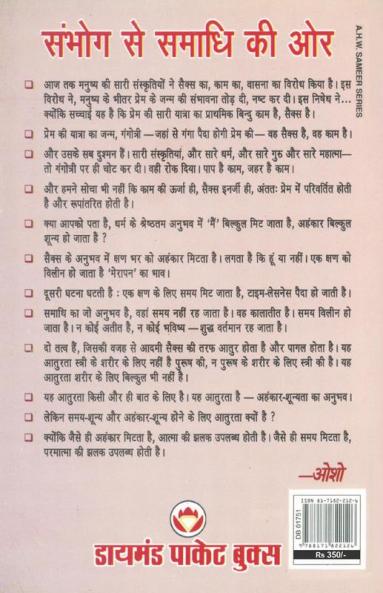 संभोग से समाधि की ओर
A.H.W. SAMEER SERIES
आज तक मनुष्य की सारी संस्कृतियों ने सैक्स का, काम का, वासना का विरोध किया है। इस
विरोध ने, मनुष्य के भीतर प्रेम के जन्म की संभावना तोड़ दी, नष्ट कर दी। इस निषेध ने...
क्योंकि सच्चाई यह है कि प्रेम की सारी यात्रा का प्राथमिक बिन्दु काम है, सैक्स है।
प्रेम की यात्रा का जन्म, गंगोत्री—जहां से गंगा पैदा होगी प्रेम की—वह सैक्स है, वह काम है।
और उसके सब दुश्मन हैं। सारी संस्कृतियां, और सारे धर्म, और सारे गुरु और सारे महात्मा—
तो गंगोत्री पर ही चोट कर दी। वहीं रोक दिया। पाप है काम, जहर है काम।
और हमने सोचा भी नहीं कि काम की ऊर्जा ही, सैक्स इनर्जी ही, अंततः प्रेम में परिवर्तित होती
है और रूपांतरित होती है।
क्या आपको पता है, धर्म के श्रेष्ठतम अनुभव में 'मैं' बिल्कुल मिट जाता है, अहंकार बिल्कुल
शून्य हो जाता है ?
सैक्स के अनुभव में क्षण भर को अहंकार मिटता है। लगता है कि हूं या नहीं। एक क्षण को
विलीन हो जाता है 'मेरापन' का भाव।
दूसरी घटना घटती है : एक क्षण के लिए समय मिट जाता है, टाइम-लेसनेस पैदा हो जाती है।
समाधि का जो अनुभव है, वहां समय नहीं रह जाता है। वह कालातीत है। समय विलीन हो
जाता है। न कोई अतीत है, न कोई भविष्य—शुद्ध वर्तमान रह जाता है।
दो तत्व हैं, जिसकी वजह से आदमी सैक्स की तरफ आतुर होता है और पागल होता है। यह
आतुरता स्त्री के शरीर के लिए नहीं है पुरुष की, न पुरुष के शरीर के लिए स्त्री की है। यह
आतुरता शरीर के लिए बिल्कुल भी नहीं है।
यह आतुरता किसी और ही बात के लिए है। यह आतुरता है—अहंकार-शून्यता का अनुभव।
लेकिन समय-शून्य और अहंकार-शून्य होने के लिए आतुरता क्यों है ?
क्योंकि जैसे ही अहंकार मिटता है, आत्मा की झलक उपलब्ध होती है। जैसे ही समय मिटता है,
परमात्मा की झलक उपलब्ध होती है।
—ओशो
डायमंड पाकेट बुक्स
DB 01751
ISBN 81-7182-212-6
9 788171 822126
Rs 350/-